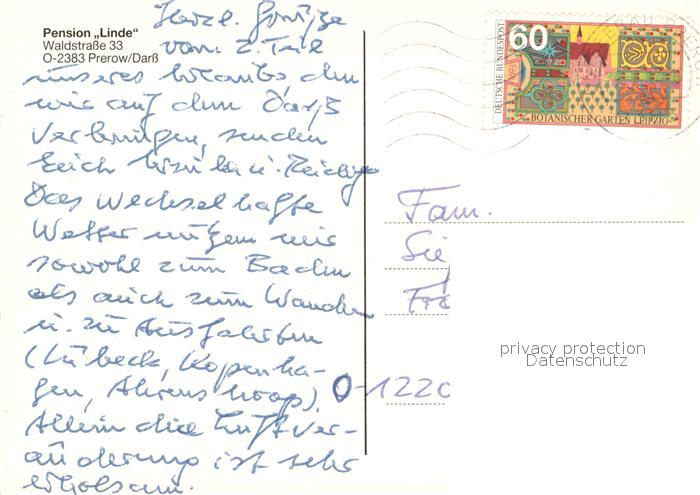 Pension „Linde“
Waldstraße 33
O-2383 Prerow/Darß
Herzl. Grüße
vom 2. Teil
unseres Urlaubs den
wir auf dem Darß
verbringen, senden
Euch u.
Das Wechselhafte
Wetter nutzen wir
sowohl zum Baden
als auch zum Wandern
u. zu Ausfahrten
(Lübeck, Kopenha-
gen, Ahrenshoop).
Allein die Luftver-
änderung ist sehr
erholsam.
DEUTSCHE BUNDESPOST
60
BOTANISCHER GARTEN LEIPZIG
Fam.
Sie
Frä
O-1220
privacy protection
Datenschutz